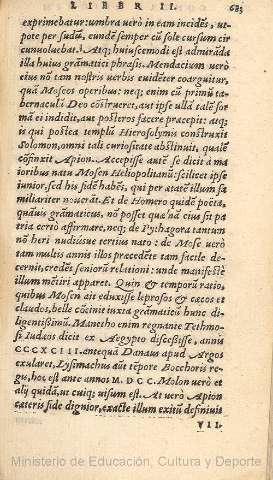 LIBER II. 683
exprimebatur: umbra uerò in eam incidẽs, ut-
pote per sudũ, eundẽ semper cũ sole cursum cir
cunuoluebat. Atq; huiuscemodi est admirãda
illa huius grãmatici phrasis. Mendacium uerò
eius nõ tam nostris uerbis euidẽter coarguitur,
quã Moscos operibus: neq; enim cũ primũ ta-
bernaculũ Deo cõstrueret, aut ipse ullã talẽ for
mã ei indidit, aut posteros facere præcepit: atq;
is qui postea templũ Hierosolymis construxit
Solomon, omni tali curiositate abstinuit, qualẽ
cõfinxit Apion. Accepisse autẽ se dicit à ma
ioribus natu Mosen Heliopolitanũ: scilicet ipse
iunior, sed his fidẽ habẽs, qui per ætatẽ illum fa
miliariter nouerãt. Et de Homero quidẽ poëta,
quãuis grãmaticus, nõ posset quæ nã eius sit pa
tria certò affirmare, neq; de Pythagora tantum
nõ heri nudiúsue tertius nato: de Mose uerò
tam multis annis illos præcedẽte tam facile de-
cernit, credẽs seniorũ relationi: unde manifestè
illum mẽtiri apparet. Quin & temporũ ratio,
quibus Mosen ait eduxisse leprosos & cæcos et
claudos, belle cõcinit iuxta grãmaticũ hunc di-
ligentissimũ. Manetho enim regnante Tethmo-
si Iudæos dicit ex Aegypto discessisse, annis
CCCXCIII. antequã Danaus apud Argos
exularet, Lysimachus aũt tẽpore Bocchoris re-
gis, hoc est ante annos M. DCC. Molon uerò et
alij quidã, ut cuiq; uisum est. At uerò Apion
cæteris fide dignior, exactè illum exitũ definiuit
VII.
Ministerio de Educación, Cultura y Deporte